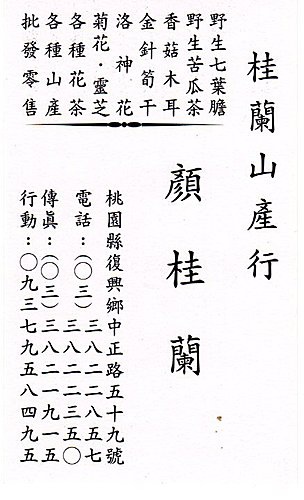 桂蘭山產行
野生七葉膽
野生苦瓜茶
香菇木耳
金針筍干
洛神花
菊花·靈芝
各種花茶
各種山產
批發零售
顏桂蘭
桃園縣復興鄉中正路五十九號
電話：(〇三)三八二二八五七
三八二二三五〇
傳真：(〇三)三八二一九一五
行動：〇九三七九五八四九五